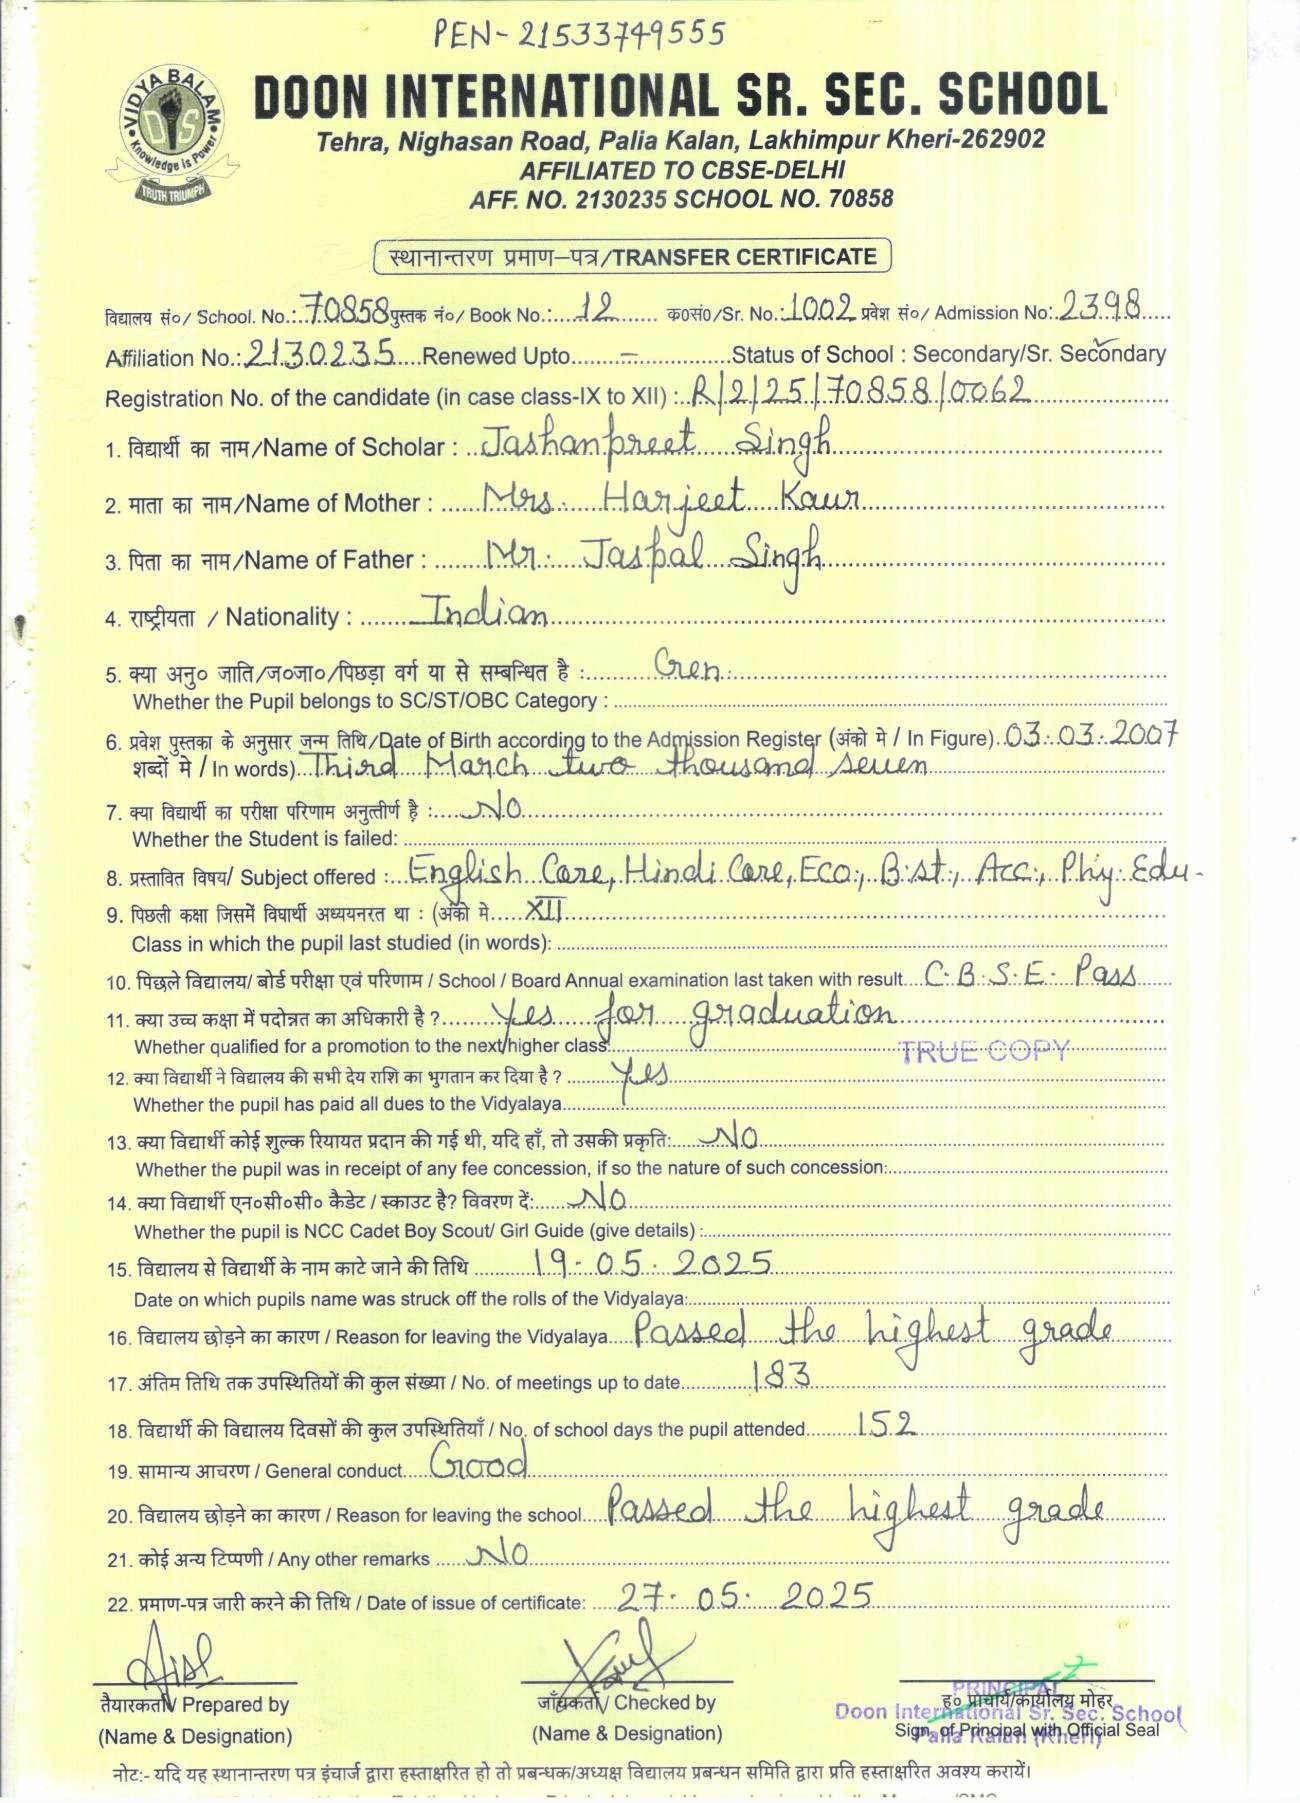 PEN- 21533749555
VIDYA BALAM
DIS
Knowledge is Power
TRUTH TRIUMPH
DOON INTERNATIONAL SR. SEC. SCHOOL
Tehra, Nighasan Road, Palia Kalan, Lakhimpur Kheri-262902
AFFILIATED TO CBSE-DELHI
AFF. NO. 2130235 SCHOOL NO. 70858
स्थानान्तरण प्रमाण–पत्र/TRANSFER CERTIFICATE
विद्यालय सं०/ School. No.: 70858 पुस्तक नं०/ Book No.: 12 क०सं०/Sr. No.: 1002 प्रवेश सं०/ Admission No: 2398
Affiliation No.: 2130235 Renewed Upto – Status of School : Secondary/Sr. Secondary
Registration No. of the candidate (in case class-IX to XII) : R/2/25/70858/0062
1. विद्यार्थी का नाम/Name of Scholar : Jashanpreet Singh
2. माता का नाम/Name of Mother : Mrs. Harjeet Kaur
3. पिता का नाम/Name of Father : Mr. Jaspal Singh
4. राष्ट्रीयता / Nationality : Indian
5. क्या अनु० जाति/ज०जा०/पिछड़ा वर्ग या से सम्बन्धित है : Gen.
Whether the Pupil belongs to SC/ST/OBC Category :
6. प्रवेश पुस्तका के अनुसार जन्म तिथि/Date of Birth according to the Admission Register (अंको मे / In Figure) 03.03.2007
शब्दों मे / In words) Third March two thousand seven
7. क्या विद्यार्थी का परीक्षा परिणाम अनुत्तीर्ण है : No
Whether the Student is failed:
8. प्रस्तावित विषय/ Subject offered : English Core, Hindi Core, Eco., B.st., Acc., Phy. Edu-
9. पिछली कक्षा जिसमें विघार्थी अध्ययनरत था : (अंको मे XII
Class in which the pupil last studied (in words):
10. पिछले विद्यालय/ बोर्ड परीक्षा एवं परिणाम / School / Board Annual examination last taken with result C.B.S.E. Pass
11. क्या उच्च कक्षा में पदोन्नत का अधिकारी है ? Yes for graduation
Whether qualified for a promotion to the next/higher class:
TRUE COPY
12. क्या विद्यार्थी ने विद्यालय की सभी देय राशि का भुगतान कर दिया है ? Yes
Whether the pupil has paid all dues to the Vidyalaya
13. क्या विद्यार्थी कोई शुल्क रियायत प्रदान की गई थी, यदि हाँ, तो उसकी प्रकृति: No
Whether the pupil was in receipt of any fee concession, if so the nature of such concession:
14. क्या विद्यार्थी एन०सी०सी० कैडेट / स्काउट है? विवरण दें: No
Whether the pupil is NCC Cadet Boy Scout/ Girl Guide (give details) :
15. विद्यालय से विद्यार्थी के नाम काटे जाने की तिथि 19.05.2025
Date on which pupils name was struck off the rolls of the Vidyalaya:
16. विद्यालय छोड़ने का कारण / Reason for leaving the Vidyalaya Passed the highest grade
17. अंतिम तिथि तक उपस्थितियों की कुल संख्या / No. of meetings up to date 183
18. विद्यार्थी की विद्यालय दिवसों की कुल उपस्थितियाँ / No. of school days the pupil attended 152
19. सामान्य आचरण / General conduct Good
20. विद्यालय छोड़ने का कारण / Reason for leaving the school Passed the highest grade
21. कोई अन्य टिप्पणी / Any other remarks No
22. प्रमाण-पत्र जारी करने की तिथि / Date of issue of certificate: 27.05.2025
तैयारकर्ता/ Prepared by जाँचकर्ता/ Checked by ह० प्राचार्य/कार्यालय मोहर
(Name & Designation) (Name & Designation) Sign. of Principal with Official Seal
PRINCIPAL
Doon International Sr. Sec. School
Palia Kalan (Kheri)
नोट:- यदि यह स्थानान्तरण पत्र इंचार्ज द्वारा हस्ताक्षरित हो तो प्रबन्धक/अध्यक्ष विद्यालय प्रबन्धन समिति द्वारा प्रति हस्ताक्षरित अवश्य करायें।